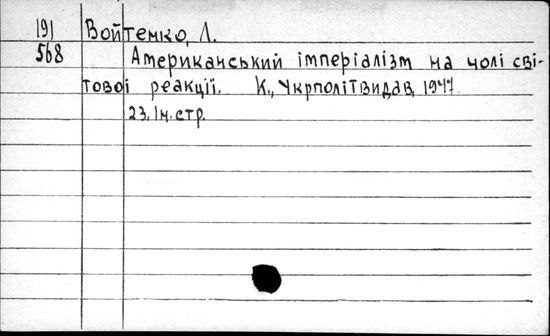 191 Войтемко, Л.
568 Американський імперіалізм на чолі сві-
тової реакції. К., Укрполітвидав, 1947
23, 1н. стр.